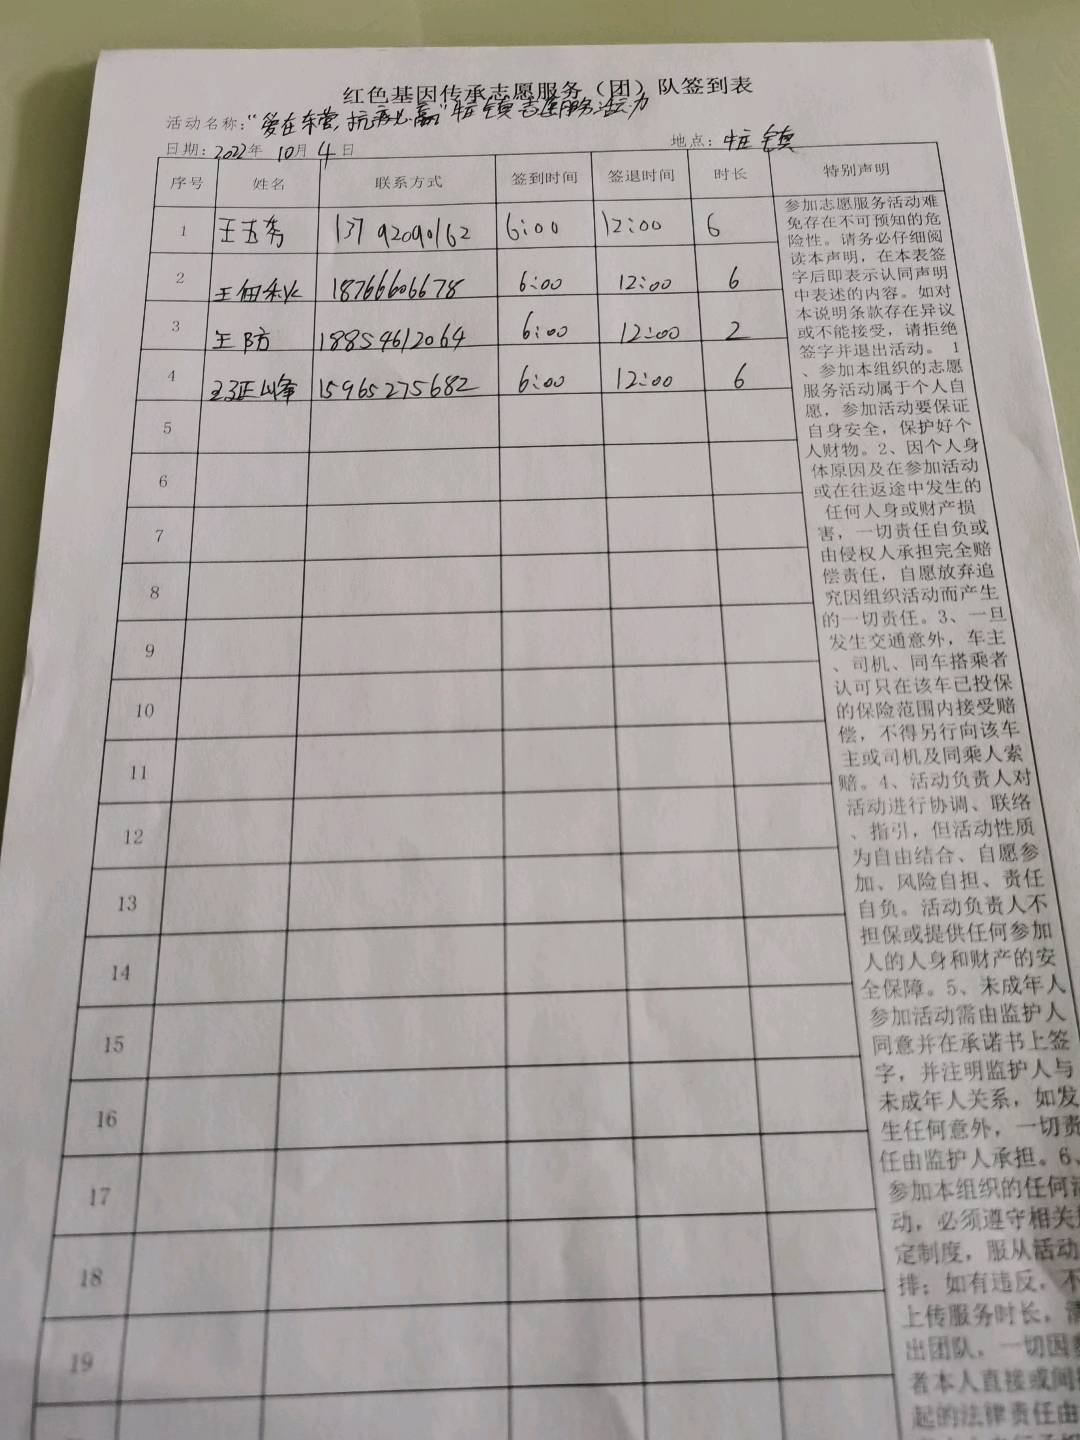 红色基因传承志愿服务（团）队签到表
活动名称：“爱在东营，抗疫必赢”牛庄镇志愿服务活动
日期：2022年 10月 4日 地点：牛庄镇
序号 姓名 联系方式 签到时间 签退时间 时长 特别声明
1 王 13792090162 6:00 12:00 6
2 王 18766606678 6:00 12:00 6
3 王防 18854612064 6:00 12:00 2
4 15965275682 6:00 12:00 6
5
6
7
8
9
10
11
12
13
14
15
16
17
18
19
参加志愿服务活动难
免存在不可预知的危
险性。请务必仔细阅
读本声明，在本表签
字后即表示认同声明
中表述的内容。如对
本说明条款存在异议
或不能接受，请拒绝
签字并退出活动。 1
、参加本组织的志愿
服务活动属于个人自
愿，参加活动要保证
自身安全，保护好个
人财物。2、因个人身
体原因及在参加活动
或在往返途中发生的
任何人身或财产损
害，一切责任自负或
由侵权人承担完全赔
偿责任，自愿放弃追
究因组织活动而产生
的一切责任。3、一旦
发生交通意外，车主
、司机、同车搭乘者
认可只在该车已投保
的保险范围内接受赔
偿，不得另行向该车
主或司机及同乘人索
赔。4、活动负责人对
活动进行协调、联络
、指引，但活动性质
为自由结合、自愿参
加、风险自担、责任
自负。活动负责人不
担保或提供任何参加
人的人身和财产的安
全保障。5、未成年人
参加活动需由监护人
同意并在承诺书上签
字，并注明监护人与
未成年人关系，如发
生任何意外，一切责
任由监护人承担。6、
参加本组织的任何活
动，必须遵守相关
定制度，服从活动
排；如有违反，不
上传服务时长，清
出团队，一切因参
者本人直接或间接
起的法律责任由